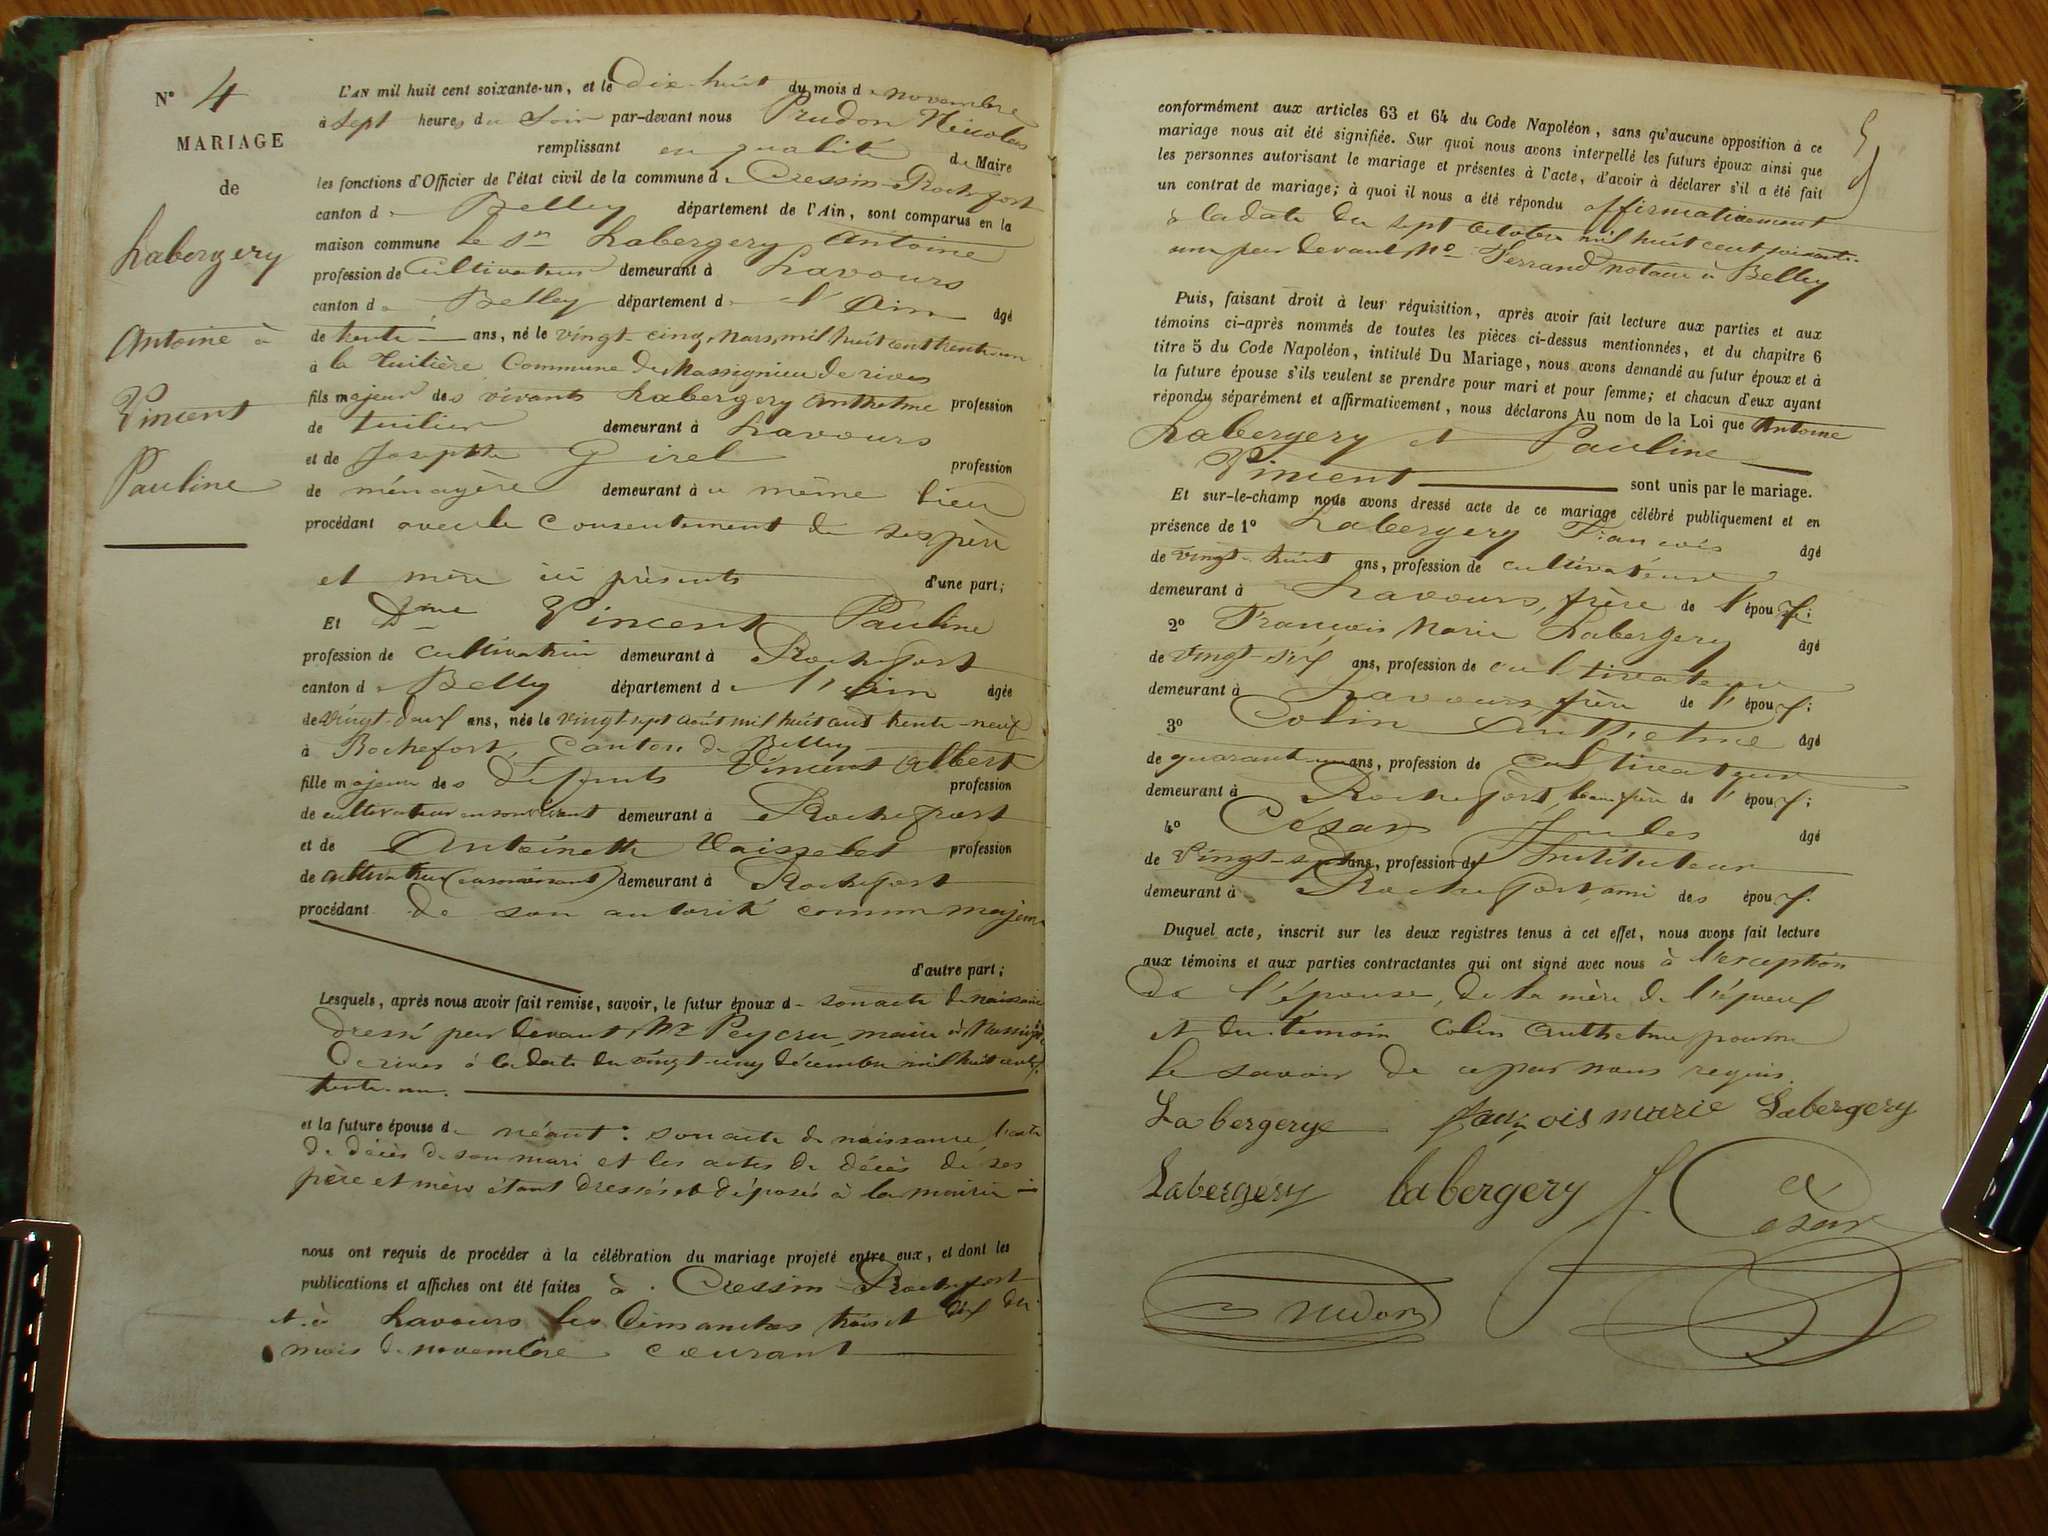 N° 4
MARIAGE
de
Labergery
Antoine à
Vincent
Pauline
L'AN mil huit cent soixante-un, et le dix-huit du mois de novembre
à sept heures du soir par-devant nous Prudon Nicolas
remplissant en qualité de Maire
les fonctions d'Officier de l'état civil de la commune de Cressin-Rochefort
canton de Belley département de l'Ain, sont comparus en la
maison commune le Sr Labergery Antoine
profession de cultivateur demeurant à Lavours
canton de Belley département de l'Ain âgé
de trente ans, né le vingt-cinq mars mil huit cent trente-un
à la Tuilière Commune de Massignieu de rives
fils majeur des vivants Labergery Anthelme profession
de tuilier demeurant à Lavours
et de Josephte Girel profession
de ménagère demeurant au même lieu
procédant avec le consentement de ses père
et mère ici présents d'une part;
Et Dme Vincent Pauline
profession de cultivatrice demeurant à Rochefort
canton de Belley département de l'Ain âgée
de vingt-deux ans, née le vingt-sept août mil huit cent trente-neuf
à Rochefort, Canton de Belley
fille majeure des défunts Vincent Albert profession
de cultivateur en son vivant demeurant à Rochefort
et de Antoinette Vaisselet profession
de cultivatrice (en son vivant) demeurant à Rochefort
procédant de son autorité comme majeure
d'autre part;
Lesquels, après nous avoir fait remise, savoir, le futur époux de son acte de naissance
dressé par devant Mr Peycru maire à Massignieu
de rives à la date du vingt-cinq décembre mil huit cent
trente-un.
et la future épouse de néant: son acte de naissance l'acte
de décès de son mari et les actes de décès de ses
père et mère étant dressés et déposés à la mairie
nous ont requis de procéder à la célébration du mariage projeté entre eux, et dont les
publications et affiches ont été faites à Cressin-Rochefort
et à Lavours les dimanches trois et dix du
mois de novembre courant
5
conformément aux articles 63 et 64 du Code Napoléon, sans qu'aucune opposition à ce
mariage nous ait été signifiée. Sur quoi nous avons interpellé les futurs époux ainsi que
les personnes autorisant le mariage et présentes à l'acte, d'avoir à déclarer s'il a été fait
un contrat de mariage; à quoi il nous a été répondu affirmativement
à la date du sept octobre mil huit cent soixante-
un par devant Me Ferrand notaire à Belley
Puis, faisant droit à leur réquisition, après avoir fait lecture aux parties et aux
témoins ci-après nommés de toutes les pièces ci-dessus mentionnées, et du chapitre 6
titre 5 du Code Napoléon, intitulé Du Mariage, nous avons demandé au futur époux et à
la future épouse s'ils veulent se prendre pour mari et pour femme; et chacun d'eux ayant
répondu séparément et affirmativement, nous déclarons Au nom de la Loi que Antoine
Labergery et Pauline
Vincent sont unis par le mariage.
Et sur-le-champ nous avons dressé acte de ce mariage célébré publiquement et en
présence de 1° Labergery François âgé
de vingt-huit ans, profession de cultivateur
demeurant à Lavours, frère de l'époux;
2° François Marie Labergery âgé
de vingt-six ans, profession de cultivateur
demeurant à Lavours frère de l'époux;
3° Colin Anthelme âgé
de quarante-un ans, profession de cultivateur
demeurant à Rochefort, beau-frère de l'époux;
4° César Jules âgé
de vingt-sept ans, profession de Instituteur
demeurant à Rochefort, ami des époux.
Duquel acte, inscrit sur les deux registres tenus à cet effet, nous avons fait lecture
aux témoins et aux parties contractantes qui ont signé avec nous à l'exception
de l'épouse, de la mère de l'époux
et du témoin Colin Anthelme pour ne
le savoir de ce par nous requis.
Labergerye françois marie Labergery
Labergery labergery J. César
Prudon